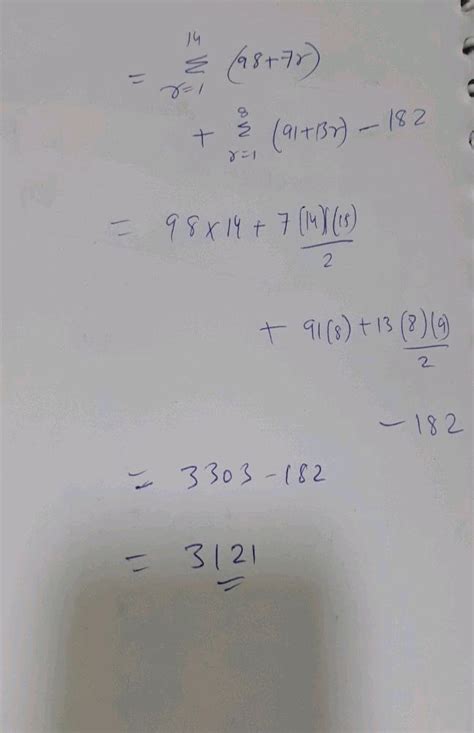 = 14 Σ r=1 (98+7r)
+ 8 Σ r=1 (91+13r) - 182
= 98 x 14 + 7 (14)(15) / 2
+ 91(8) + 13 (8)(9) / 2
- 182
= 3303 - 182
= 3121